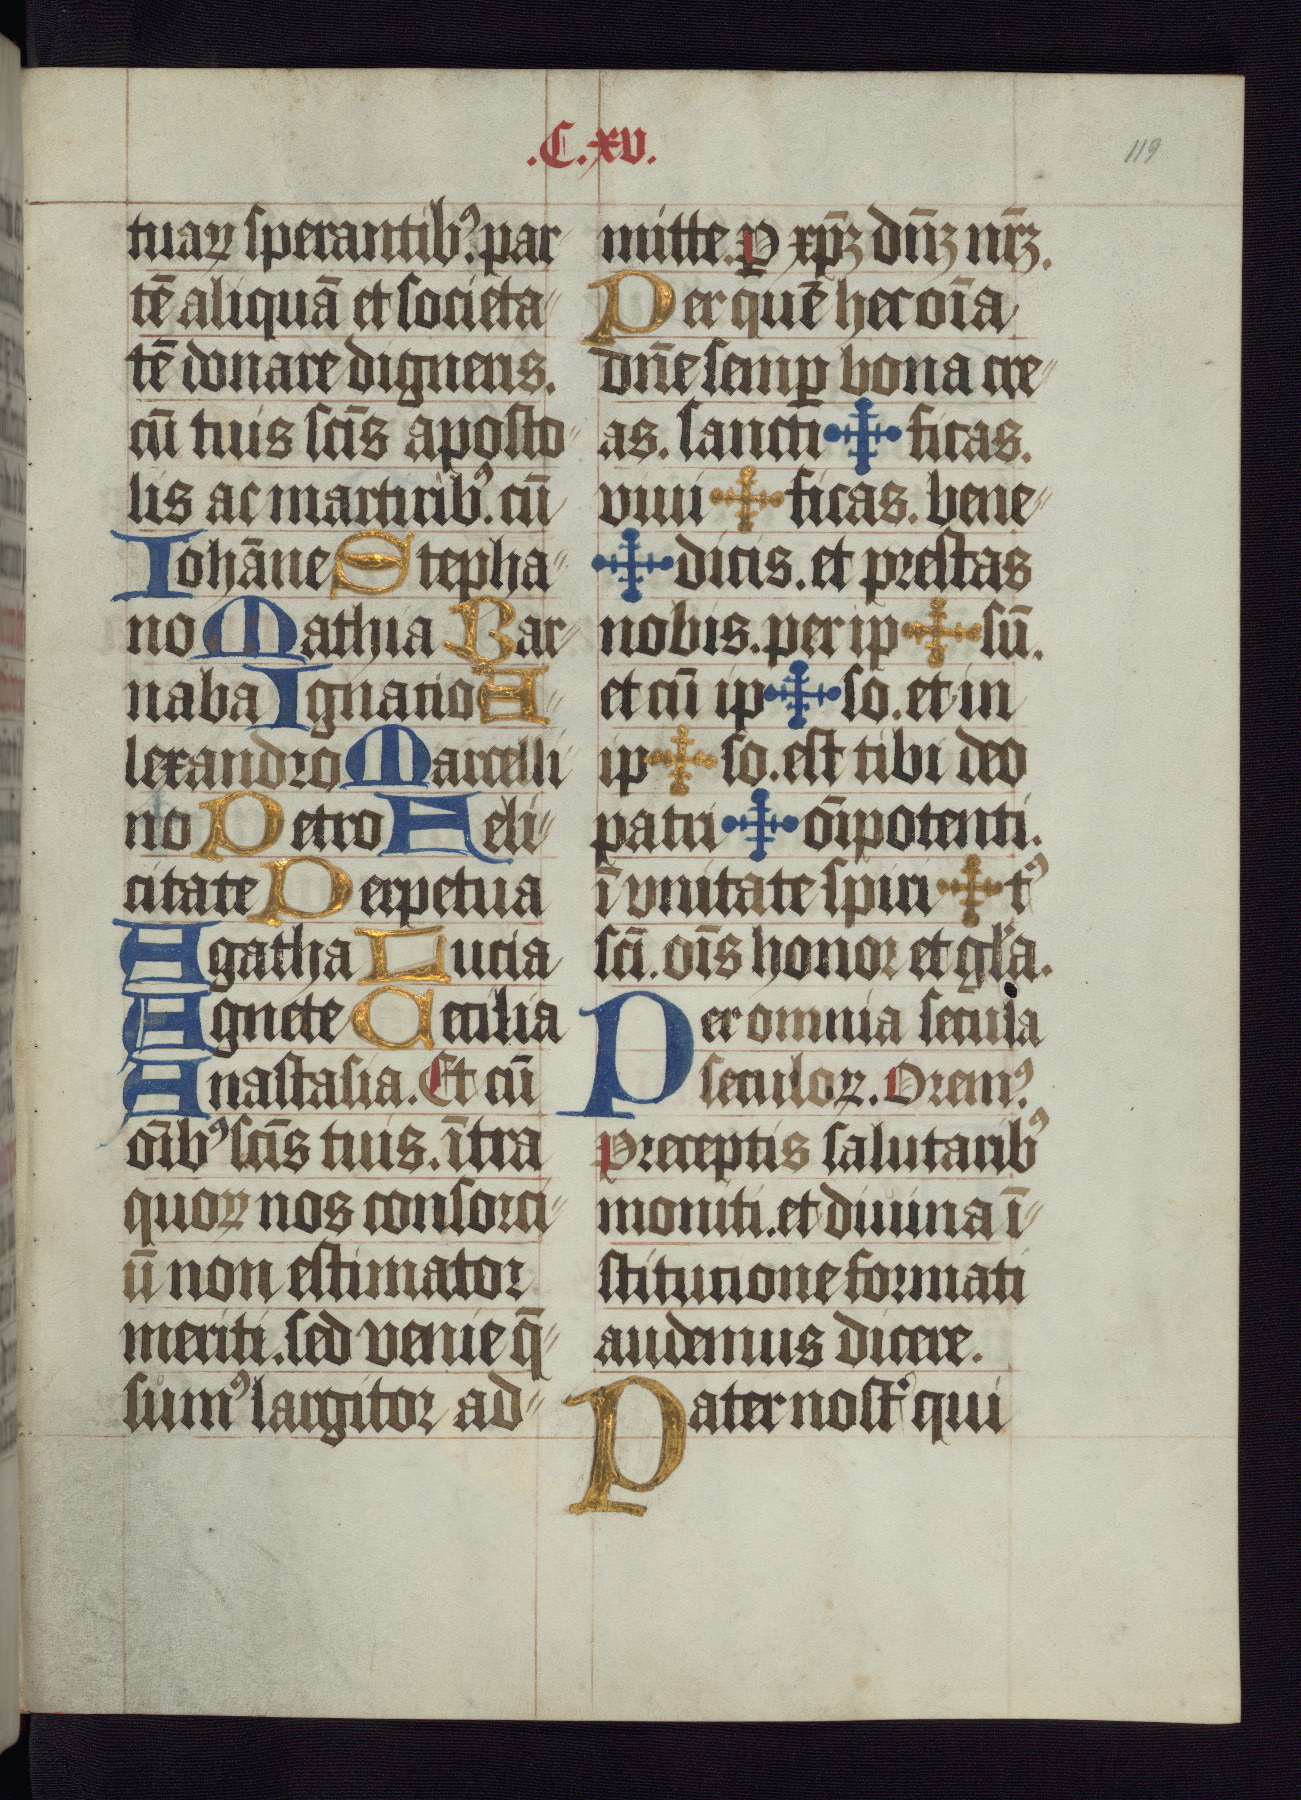 .C.xv.
119
tuaꝝ sperantibꝰ. par
tē aliquā et societa-
tē donare digneris.
cū tuis scīs aposto-
lis ac martiribꝰ. cū
Iohāne Stepha-
no Mathia Bar-
naba Ignatio A-
lexandro Marcelli-
no Petro Feli-
citate Perpetua
Agatha Lucia
Agnete Cecilia
Anastasia. Et cū
oībꝰ scīs tuis. ītra
quoꝝ nos consorci-
ū non estimator
meriti. sed venie q̄-
sumꝰ largitor ad-
mitte. P xp̄ꝫ dn̄ꝫ nr̄ꝫ.
Per quē hec oīa
dn̄e semꝑ bona cre-
as. sancti ✠ ficas.
viui ✠ ficas. bene-
✠ dicis. et prestas
nobis. per ip ✠ sū.
et cū ip ✠ so. et in
ip ✠ so. est tibi deo
patri ✠ oīpotenti.
ī vnitate spiri ✠ tꝰ
scī. oīs honor et gl'a.
Per omnia secula
seculoꝝ. Oremꝰ.
Preceptis salutaribꝰ
moniti. et diuina ī-
stitucione formati
audemus dicere.
Pater nost' qui